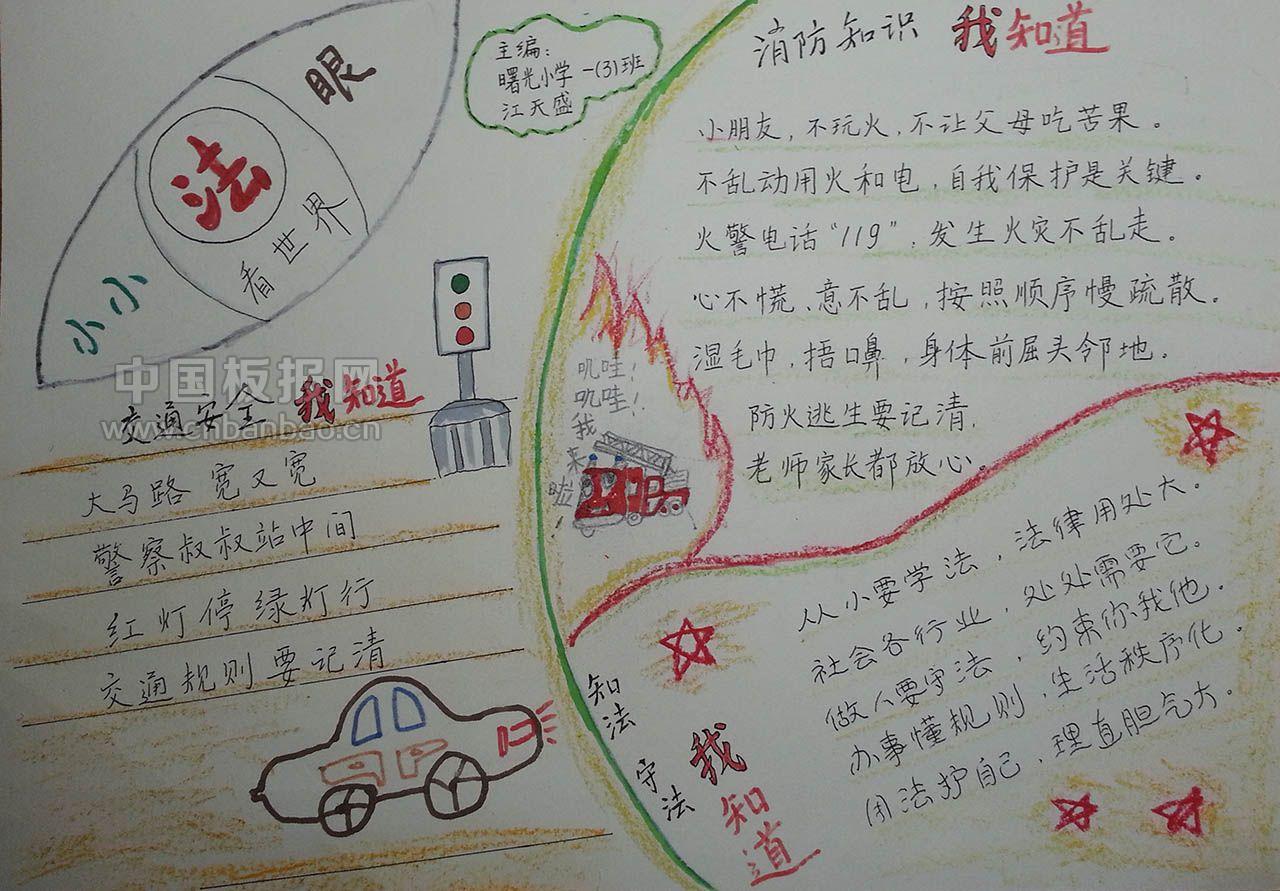 小小
法
眼
看世界
主编：
曙光小学 一(3)班
江天盛
中国板报网
www.chbanbao.cn
交通安全 我知道
大马路 宽又宽
警察叔叔站中间
红灯停绿灯行
交通规则要记清
消防知识 我知道
小朋友，不玩火，不让父母吃苦果。
不乱动用火和电，自我保护是关键。
火警电话“119”，发生火灾不乱走。
心不慌、意不乱，按照顺序慢疏散。
湿毛巾，捂口鼻，身体前屈头邻地。
防火逃生要记清，
老师家长都放心。
叽哇！
叽哇！
我来啦！
知法 守法 我知道
从小要学法，法律用处大。
社会各行业，处处需要它。
做人要守法，约束你我他。
办事懂规则，生活秩序化。
用法护自己，理直胆气大。